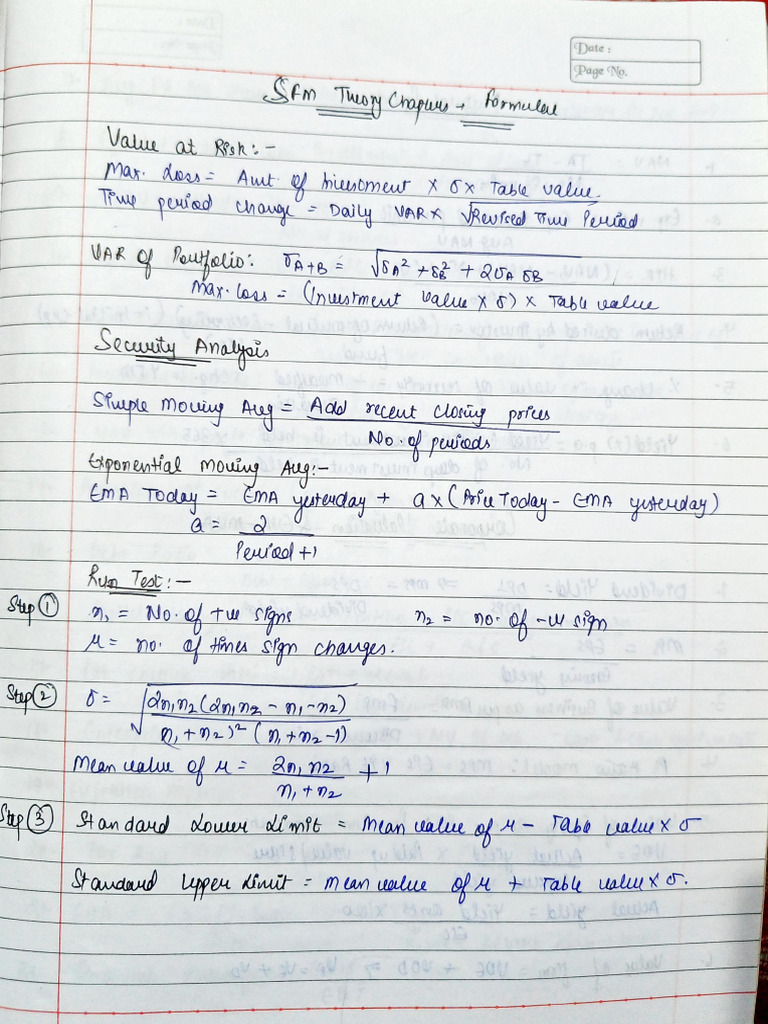 Date :
Page No.
SFM Theory Chapters + Formulae
Value at Risk:-
Max. Loss = Amt. of Investment × σ × Table value.
Time period change = Daily VAR × √Revised Time Period
VAR of Portfolio: σA+B = √σA² + σB² + 2σA σB
Max. loss = (Investment value × σ) × Table value
Security Analysis
Simple Moving Avg = Add recent closing prices
No. of periods
Exponential Moving Avg:-
EMA Today = EMA yesterday + a × (Price Today - EMA yesterday)
a = 2
Period + 1
Run Test:-
Step ① n₁ = No. of +ve signs n₂ = no. of -ve sign
r = no. of times sign changes.
Step ② σ = √2n₁n₂(2n₁n₂ - n₁ - n₂)
(n₁ + n₂)² (n₁ + n₂ - 1)
Mean value of r = 2n₁n₂ + 1
n₁ + n₂
Step ③ Standard Lower Limit = Mean value of r - Table value × σ
Standard Upper Limit = mean value of r + Table value × σ.